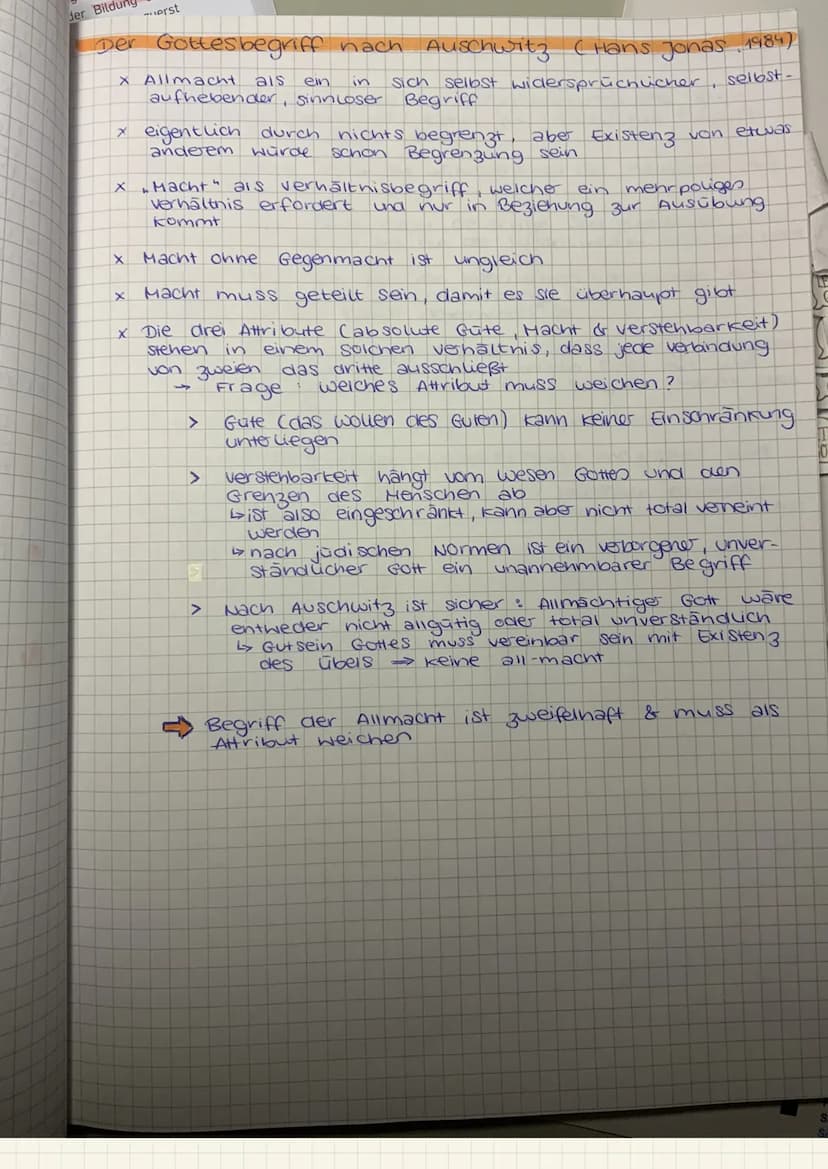 der Bildung
zuerst
Der Gottesbegriff nach Auschwitz (Hans Jonas, 1984)
x Allmacht als ein in sich selbst widersprüchlicher, selbst-
aufhebender, sinnloser Begriff
x eigentlich durch nichts begrenzt, aber Existenz von etwas
anderem würde schon Begrenzung sein
x „Macht" als Verhältnisbegriff, welcher ein mehrpoliges
Verhältnis erfordert und nur in Beziehung zur Ausübung
kommt
x Macht ohne Gegenmacht ist ungleich
x Macht muss geteilt sein, damit es sie überhaupt gibt
x Die drei Attribute (absolute Güte, Macht & Verstehbarkeit)
stehen in einem solchen Verhältnis, dass jede Verbindung
von zweien das dritte ausschließt
→ Frage: Welches Attribut muss weichen?
> Güte (das Wollen des Guten) kann keiner Einschränkung
unterliegen
> Verstehbarkeit hängt vom Wesen Gottes und den
Grenzen des Menschen ab
↳ ist also eingeschränkt, kann aber nicht total verneint
werden
↳ nach jüdischen Normen ist ein verborgener, unver-
ständlicher Gott ein unannehmbarer Begriff
> Nach Auschwitz ist sicher: Allmächtiger Gott wäre
entweder nicht allgütig oder total unverständlich
↳ Gutsein Gottes muss vereinbar sein mit Existenz
des Übels → keine all-macht
⇒ Begriff der Allmacht ist zweifelhaft & muss als
Attribut weichen